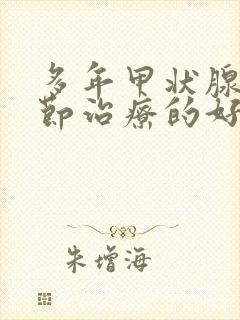 多年甲状腺
节治疗的好
朱增海